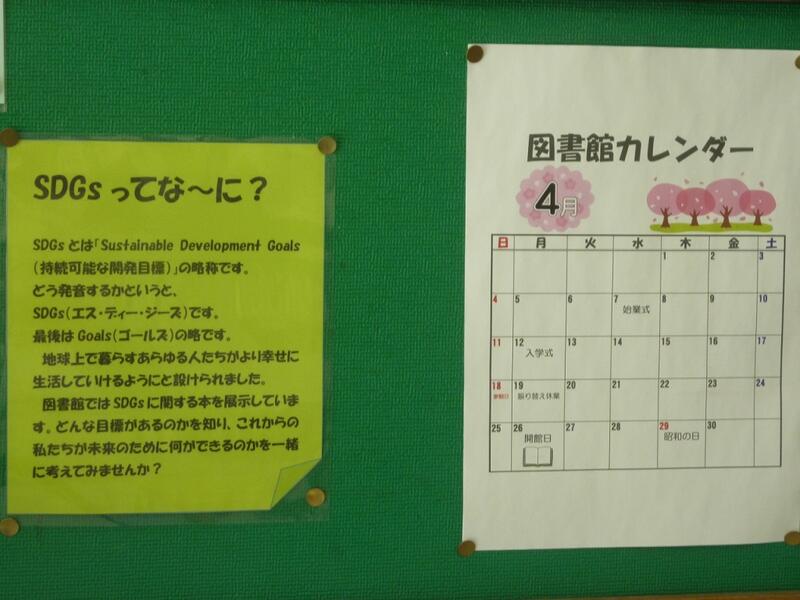 SDGs ってな～に？
SDGs とは「Sustainable Development Goals
（持続可能な開発目標）」の略称です。
どう発音するかというと、
SDGs（エス・ディー・ジーズ）です。
最後は Goals（ゴールズ）の略です。
地球上で暮らすあらゆる人たちがより幸せに
生活していけるようにと設けられました。
図書館では SDGs に関する本を展示していま
す。どんな目標があるのかを知り、これからの
私たちが未来のために何ができるのかを一緒
に考えてみませんか？
図書館カレンダー
4月
日 月 火 水 木 金 土
1 2 3
4 5 6 7 8 9 10
始業式
11 12 13 14 15 16 17
入学式
18 19 20 21 22 23 24
参観日 振り替え休業
25 26 27 28 29 30
開館日 昭和の日